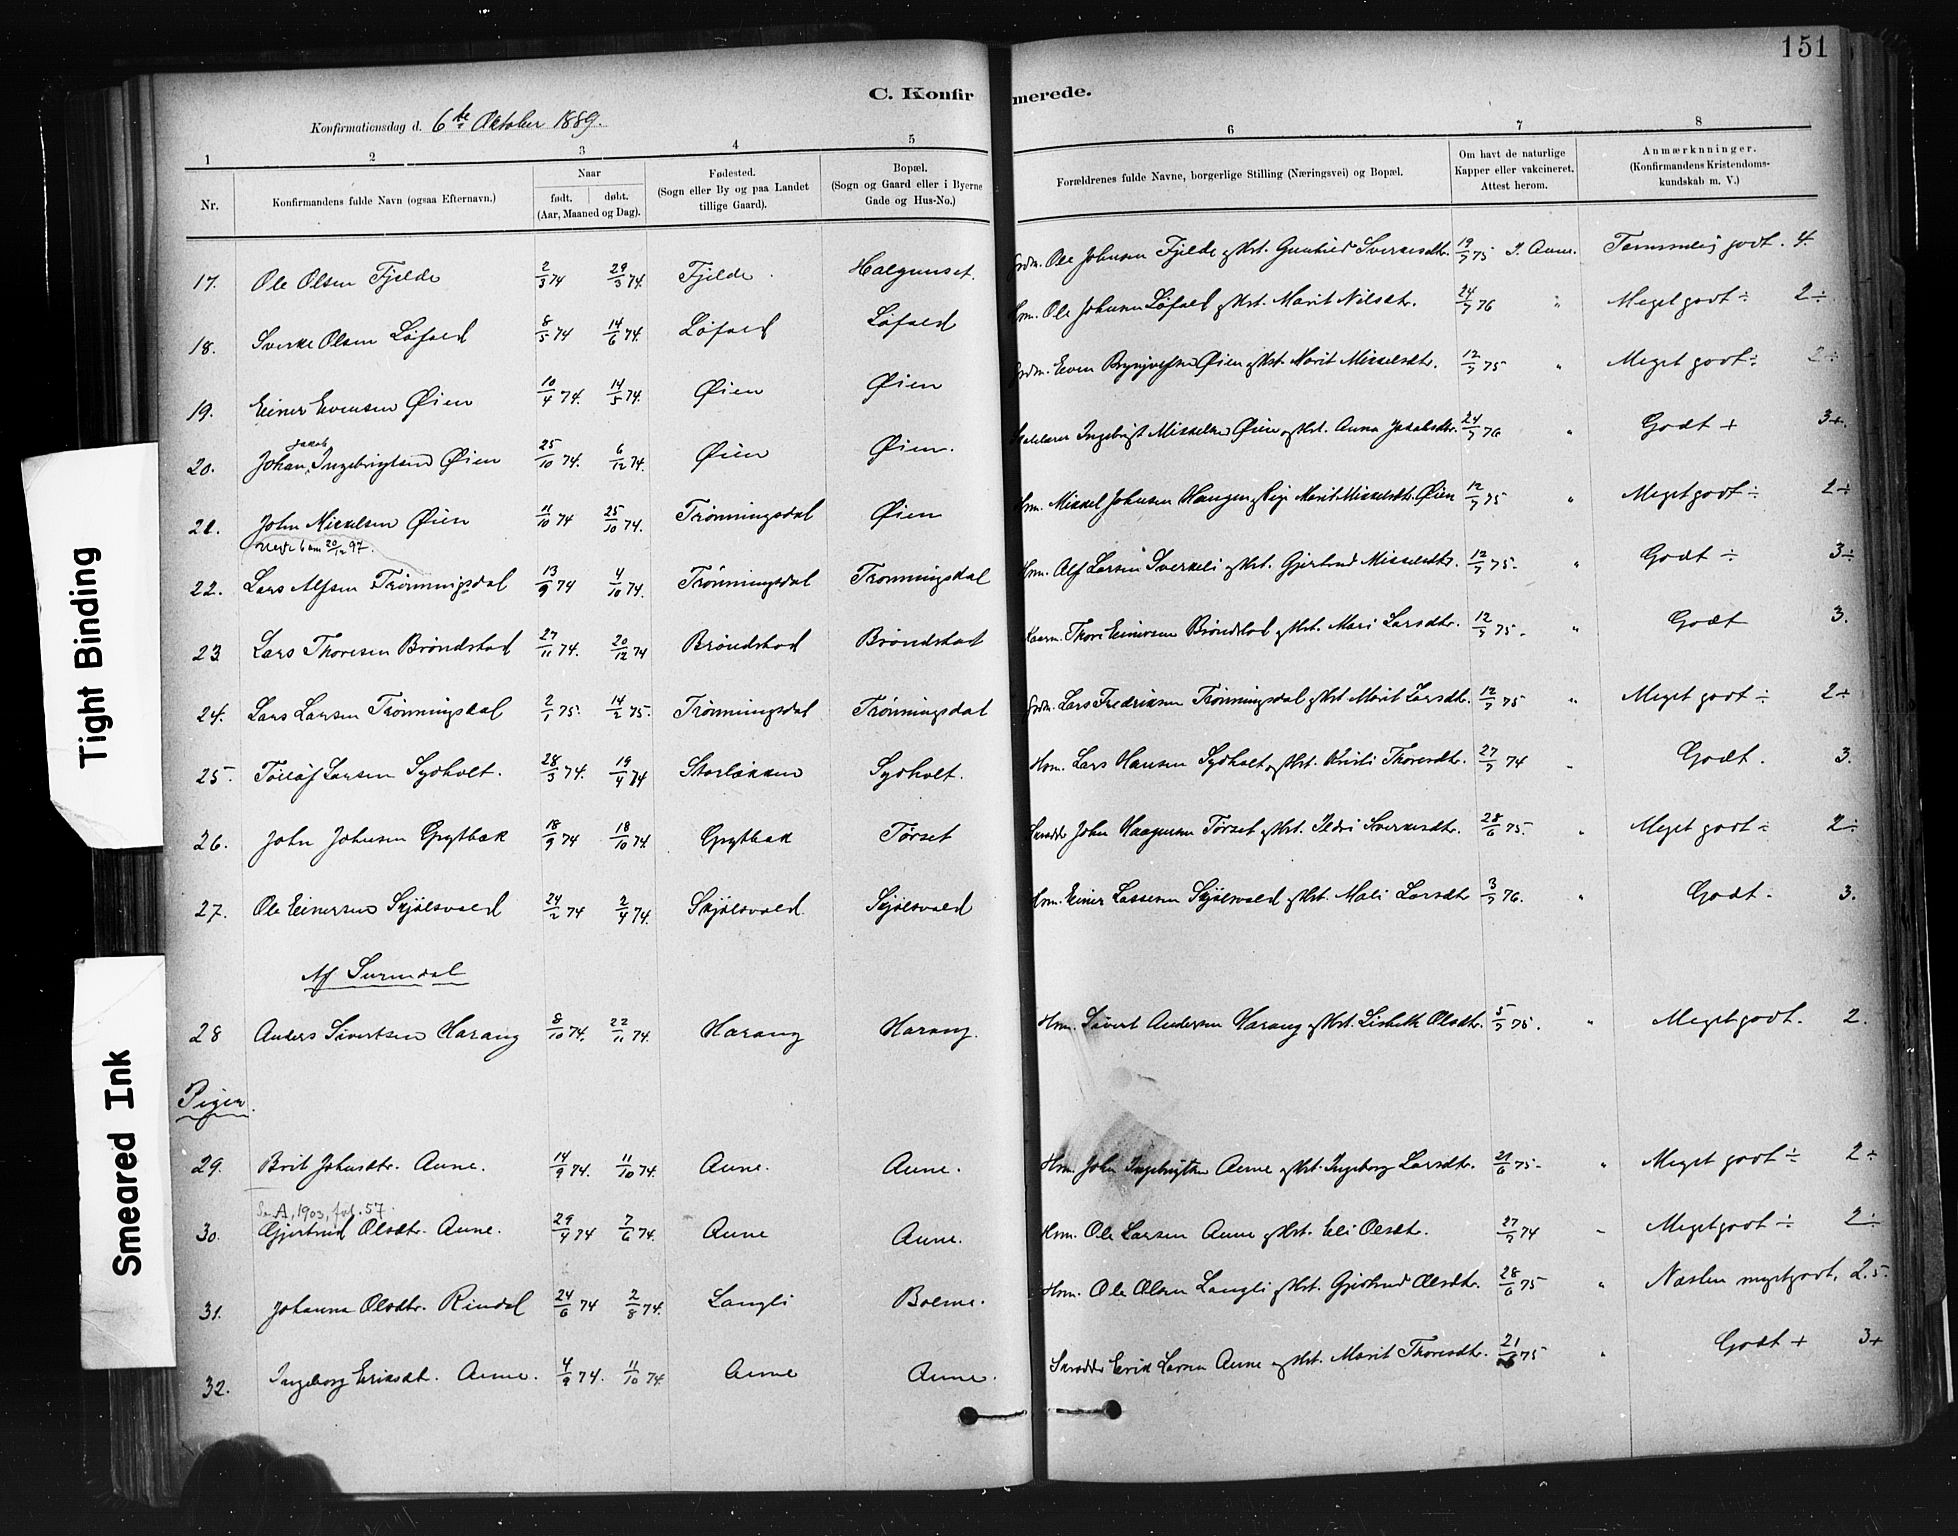 151
C. Konfirmerede.
Konfirmationsdag d. 6te Oktober 1889.
1 2 3 4 5 6 7 8
Nr. Konfirmandens fulde Navn (ogsaa Efternavn.) Naar født. døbt. (Aar, Maaned og Dag). Fødested. (Sogn eller By og paa Landet tillige Gaard). Bopæl. (Sogn og Gaard eller i Byerne Gade og Hus-No.) Forældrenes fulde Navne, borgerlige Stilling (Næringsvei) og Bopæl. Om havt de naturlige Kapper eller vakcineret. Attest herom. Anmærknninger. (Konfirmandens Kristendoms-kundskab m. V.)
17. Ole Olsen Fjelde 2/3 74 29/3 74. Fjelde. Halgunset. Grdm. Ole Johnsen Fjelde og Kst. Gunhild Sverkesdtr. 19/7 75 J. Aune. Temmelig godt. 4.
18. Sverke Olsen Løfald 8/5 74 14/6 74. Løfald Løfald Hsm. Ole Johnsen Løfald og Kst. Marit Nilsdtr. 24/7 76 " Meget godt ÷ 2÷
19. Einer Evensen Øien 10/4 74. 14/5 74. Øien Øien Grdm. Even Brynjulfsen Øien og Kst. Marit Mikkelsdtr. 12/7 75 " Meget godt ÷ 2÷
20. Johan Jakob Ingebrigtsen Øien 25/10 74. 6/12 74. Øien Øien. Ingebrigt Mikkelsen Øien og Kst. Anna Jakobsdtr. 24/7 76 " Godt + 3+.
21. John Mikkelsen Øien 11/10 74 25/10 74. Trønningsdal Øien Hsm. Mikkel Johnsen Haugen og Pige Marit Mikkelsdtr. Øien 12/7 75 " Meget godt ÷ 2÷
20/12 97.
22. Lars Alfsen Trønningsdal 13/9 74 4/10 74. Trønningsdal Trønningsdal Hsm. Alf Larsen Sverkeli og Kst. Gjertrud Mikkelsdtr. 12/7 75. " Godt ÷ 3÷
23. Lars Thoresen Brøndstad 27/11 74. 20/12 74 Brøndstad Brøndstad Kaarm. Thore Einersen Brøndstad og Kst. Mari Larsdtr. 12/7 75. " Godt 3.
24. Lars Larsen Trønningsdal 2/1 75. 14/2 75. Trønningsdal Trønningsdal Grdm. Lars Fredriksen Trønningsdal og Kst. Marit Larsdtr. 12/7 75 " Meget godt ÷ 2÷
25. Tollöf Larsen Sydholt. 28/3 74. 19/4 74 Storløkken Sydholt. Hsm. Lars Hansen Sydholt og Kst. Kristi Thoresdtr. 27/7 74 " Godt. 3.
26. John Johnsen Grytbak 18/9 74 18/10 74 Grytbak Tørset Skrædder John Haagensen Tørset og Kst. Ildri Sverkesdtr. 28/6 75. " Meget godt ÷ 2÷
27. Ole Einersen Skjølsvold 24/2 74 2/4 74. Skjølsvold Skjølsvold Hsm. Einer Lassesen Skjølsvold og Kst. Mali Larsdtr 3/7 76. " Godt. 3.
Af Surendal
28 Anders Sivertsen Harang 8/10 74. 22/11 74. Harang Harang. Hsm. Sivert Andersen Harang og Kst. Lisbeth Olsdtr. 5/7 75. " Meget godt. 2.
Piger.
29. Brit Johnsdtr. Aune. 14/9 74. 11/10 74. Aune. Aune. Hsm. John Ingebrigtsen Aune og Kst. Ingeborg Larsdtr. 21/6 75. " Meget godt ÷ 2÷
Se A, 1903, fol. 57.
30. Gjertrud Olsdtr. Aune. 29/4 74 7/6 74. Aune Aune. Hsm. Ole Larsen Aune og Kst. Eli Olsdtr. 27/7 74 " Meget godt ÷ 2÷
31. Johanna Olsdtr. Rindal 24/6 74 2/8 74. Langli Bolme. Hsm. Ole Olsen Langli og Kst. Gjertrud Olsdtr. 28/6 75 " Næsten meget godt. 2.5.
32. Ingeborg Eriksdt. Aune. 4/9 74. 11/10 74. Aune Aune. Skrædder Erik Larsen Aune og Kst. Marit Thoresdtr. 21/6 75 " Godt + 3+
Tight Binding
Smeared Ink